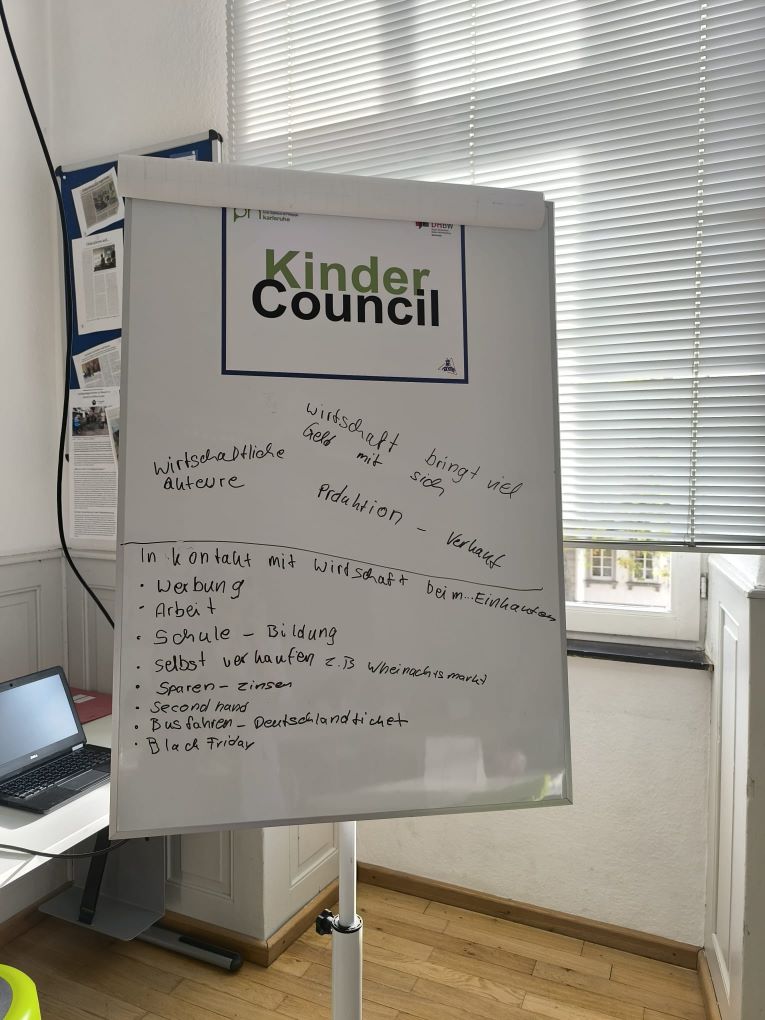 karlsruhe
DHBW
Kinder
Council
wirtschaft bringt viel
Geld mit sich
wirtschaftliche
auteure
Prduktion - Verkauf
In kontakt mit wirtschaft beim... Einkaufen
• Werbung
• Arbeit
• Schule - Bildung
• selbst verkaufen z.B Wheinachtsmarkt
• Sparen - zinsen
• Second hand
• Busfahren - Deutschlandticket
• Black Friday
DELL